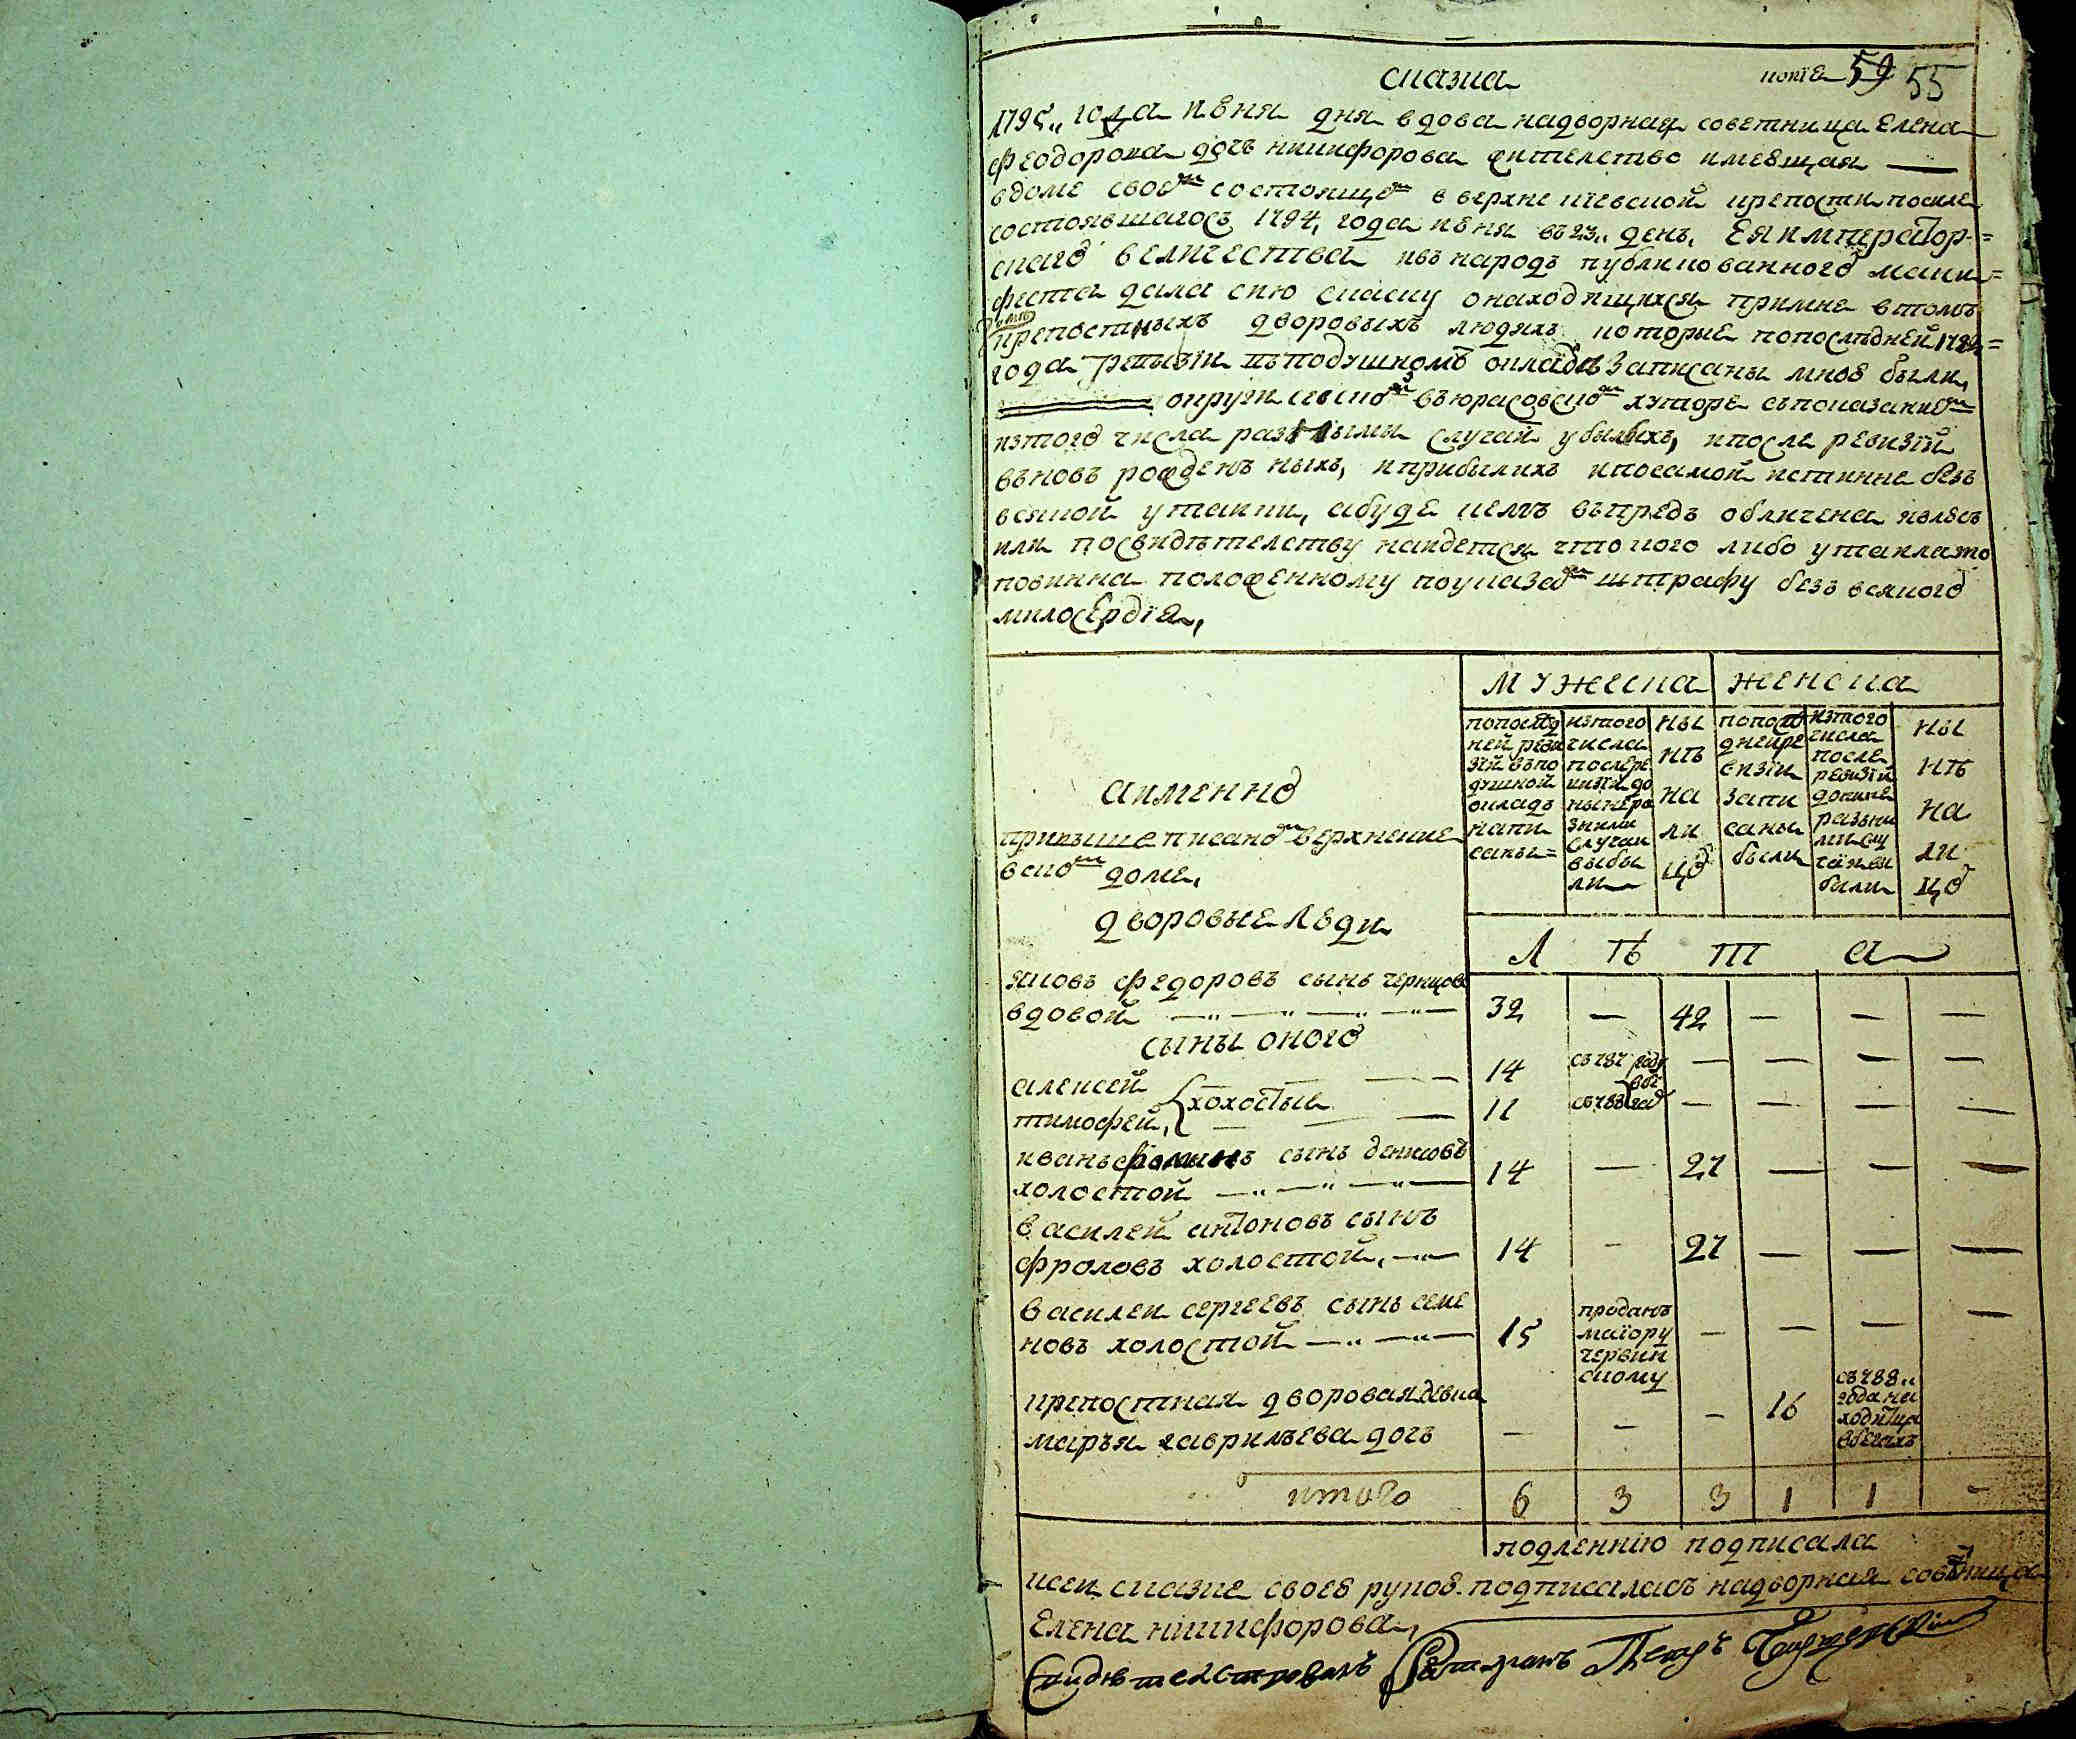 сказка
копiя 59 55
1795„ года июня дня вдова надворная советница Елена
Феодорова дочь никифорова жителство имеющая
вдоме своем состоящем в верхне киевской крепости после
состоявшагось 1794, года июня въ 23„ день, Ея император=
скаго величества ивъ народъ публикованного мани=
феста дала сию скаску онаходящихся примне втомъ
крепостныхъ дворовыхъ людяхъ которые попоследней 1782=
года ревизiи въподушномъ окладе записаны мною были,
округи въюрасовском хуторе съпоказанием
изтого числа разными случаи убылыхъ, ипосле ревизiи
въновь рожденъныхъ, иприбылихъ ипосамой истинне безъ
всякой утайки, абуде чемъ въпредь обличена явлюсь
или посвидетелству найдется что кого либо утаилато
повинна положенному поуказам штрафу безъ всякого
милосердiя,
мужеска женска
попослед
ней реви
зiи въпо
душной
окладъ
напи
саны=
изтого
числа
послере
визiи до
ныне ра
зними
случаи
выбы
ли
ны
не
на
ли
цо
попосле
дней ре
визiи
запи
саны
были
изтого
числа
после
ревизiи
доныне
разни
ми слу
чаи вы
били
ны
не
на
ли
цо
аименно
привыше писаном верхнекие
вском доме,
дворовые люди
л ѣ т а
яковъ федоровъ сынъ черицовъ
вдовой 32 — 42 — — —
сыны оного
алексей 14 съ 787 году — — — —
тимофей, холостые 11 съ 788 год — — — —
иванъ фоминъ сынъ денисовъ
холостой 14 — 27 — — —
василей антоновъ сынъ
фроловъ холостой, 14 — 27 — — —
василей сергеевъ сынъ семе
новъ холостой 15 проданъ
маiору
червин
скому — — — —
крепостная дворовая девка
марья гаврильева дочь — — — 16 съ 788„
года на
ходитца
вбегахъ
итого 6 3 3 1 1 -
подленнiю подписала
ксей сказке своею рукою подписалась надворная советница
Елена никифорова,
Свидетелствовалъ Ротмистръ Петръ